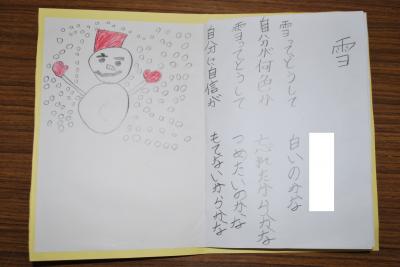 雪
雪ってどうして
白いのかな
自分が何色か
忘れたからかな
雪ってどうして
つめたいのかな
自分に自信が
もてないからかな